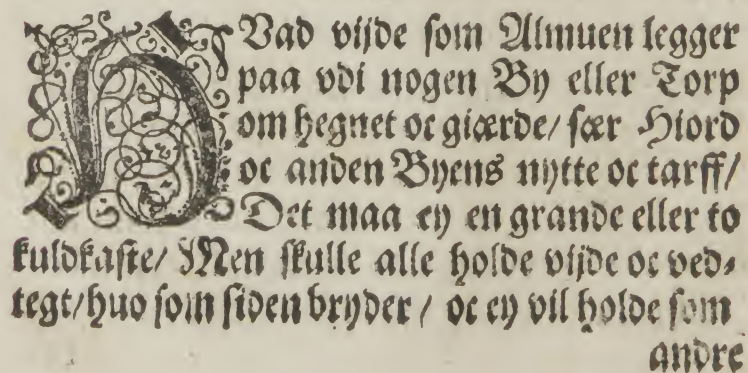 HVad vijde som Almuen legger
paa vdi nogen By eller Torp
om hegnet oc giærde/ fær Hiord
oc anden Byens nytte oc tarff/
Det maa ey en grande eller to
kuldkaste/ Men skulle alle holde vijde oc ved-
tegt/ huo som siden bryder / oc ey vil holde som
andre